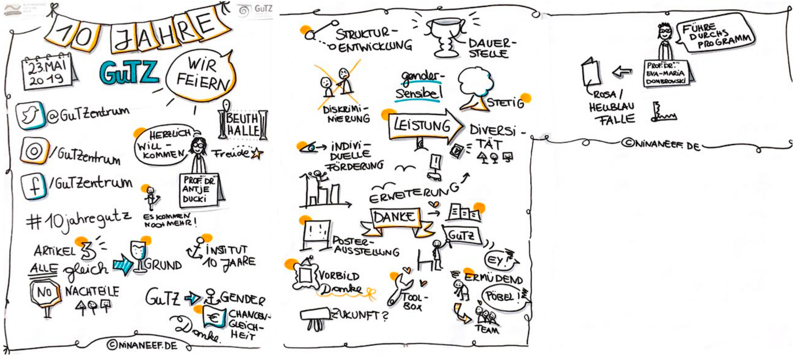 10 JAHRE
GuTZ
GuTZ
23. MAI
2019
WIR
FEIERN
@GuTZentrum
BEUTH
HALLE
/GuTZentrum
HERZLICH
WILL-
KOMMEN
Freude
/GuTZentrum
PROF. DR.
ANTJE
DUCKI
ES KOMMEN
NOCH MEHR!
#10jahregutz
ARTIKEL 3
ALLE gleich
GRUND
INSTITUT
10 JAHRE
NO
NACHTEILE
GuTZ
GENDER
€
CHANCEN-
GLEICH-
HEIT
Danke
©NINANEEF.DE
STRUKTUR-
ENTWICKLUNG
DAUER-
STELLE
DISKRIMI-
NIERUNG
gender-
Sensibel
STETIG
LEISTUNG
DIVERSI-
TÄT
INDIVI-
DUELLE
FÖRDERUNG
ERWEITERUNG
DANKE
GuTZ
POSTER-
AUSSTELLUNG
EY!
VORBILD
Danke
TOOL-
BOX
ERMÜDEND
PÖBEL!
ZUKUNFT?
TEAM
©NINANEEF.DE
FÜHRE
DURCHS
PROGRAMM
PROF. DR.
EVA-MARIA
DOMBROWSKI
ROSA/
HELLBLAU
FALLE
©NINANEEF.DE